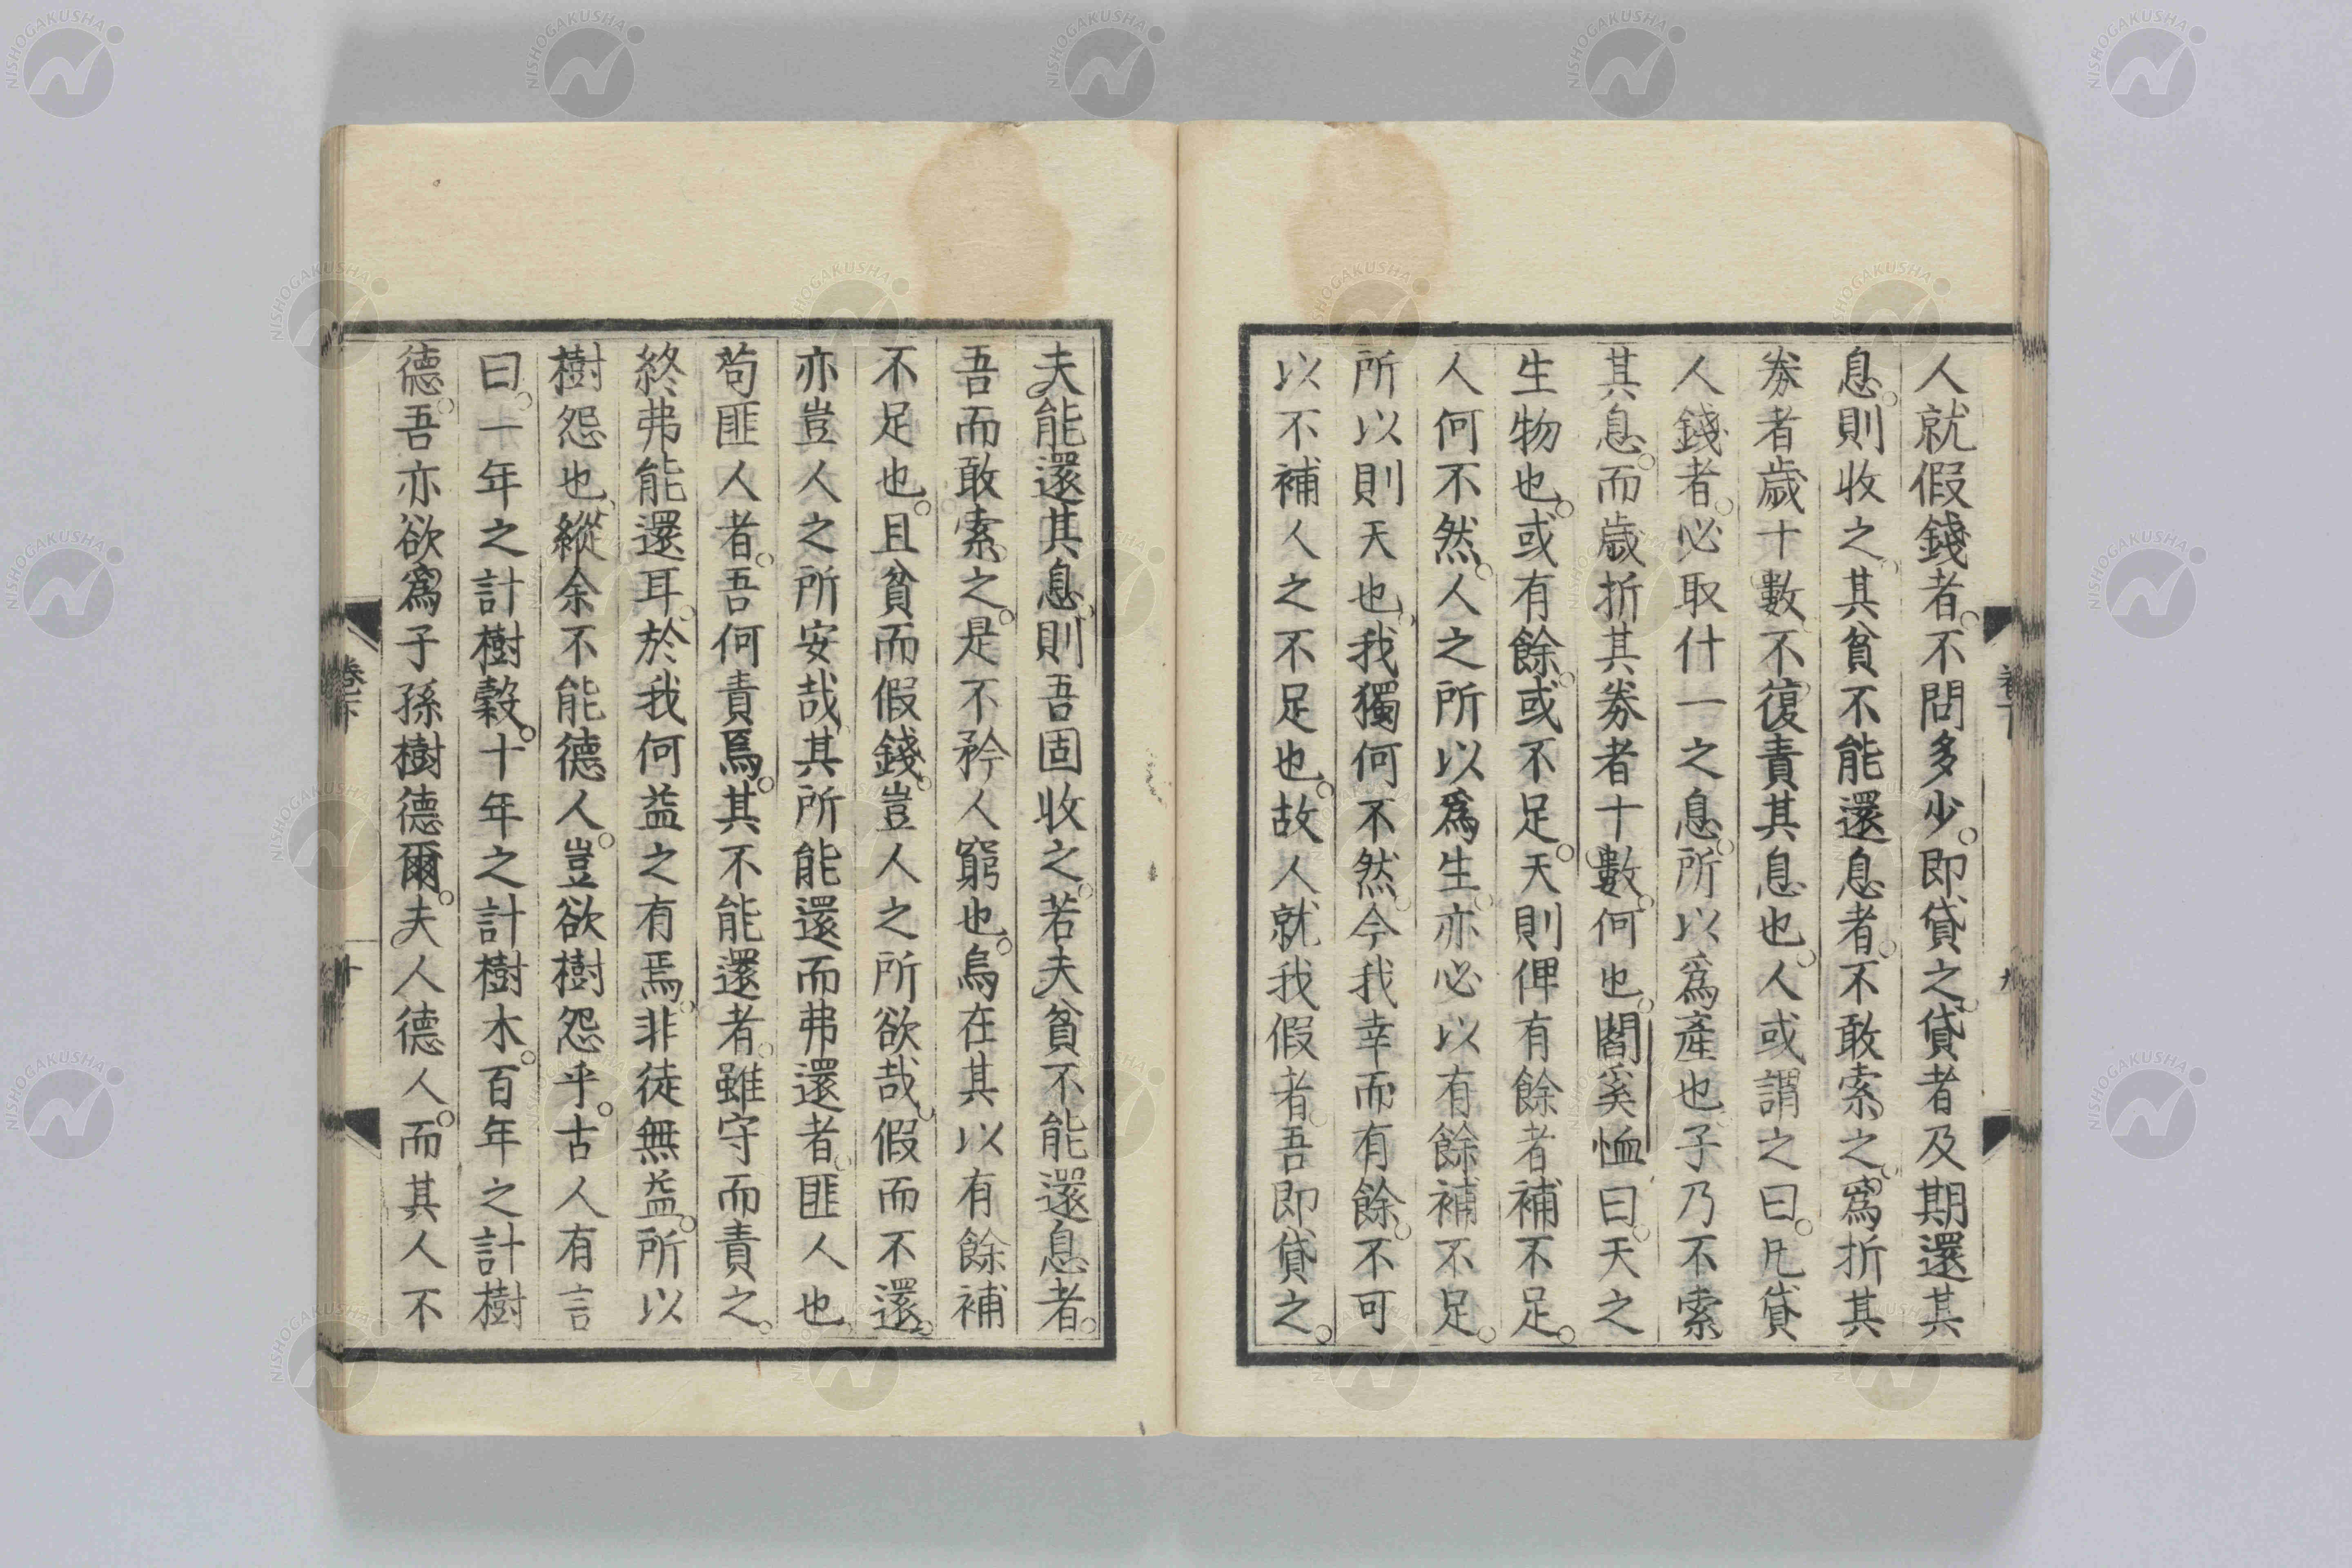 人就假錢者。不問多少。即貸之。貸者及期還其
息。則收之。其貧不能還息者。不敢索之。為折其
券者歲十數。不復責其息也。人或謂之曰。凡貸
人錢者。必取什一之息。所以為產也。子乃不索
其息。而歲折其券者十數。何也。閻奚恤曰。天之
生物也。或有餘。或不足。天則俾有餘者補不足。
人何不然。人之所以爲生。亦必以有餘補不足。
所以則天也。我獨何不然。今我幸而有餘。不可
以不補人之不足也。故人就我假者。吾即貸之。
夫能還其息。則吾固收之。若夫貧不能還息者。
吾而敢索之。是不矜人窮也。烏在其以有餘補
不足也。且貧而假錢。豈人之所欲哉。假而不還。
亦豈人之所安哉。其所能還而弗還者。匪人也。
苟匪人者。吾何責焉。其不能還者。雖守而責之。
終弗能還耳。於我何益之有焉。非徒無益。所以
樹怨也。縱余不能德人。豈欲樹怨乎。古人有言
曰。一年之計樹穀。十年之計樹木。百年之計樹
德。吾亦欲為子孫樹德爾。夫人德人。而其人不
卷下
十
NISHOGAKUSHA